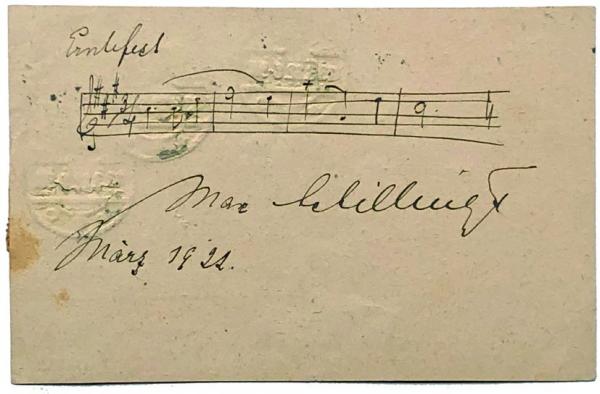 Erntefest
3/4
Max Schillings
März 1922.